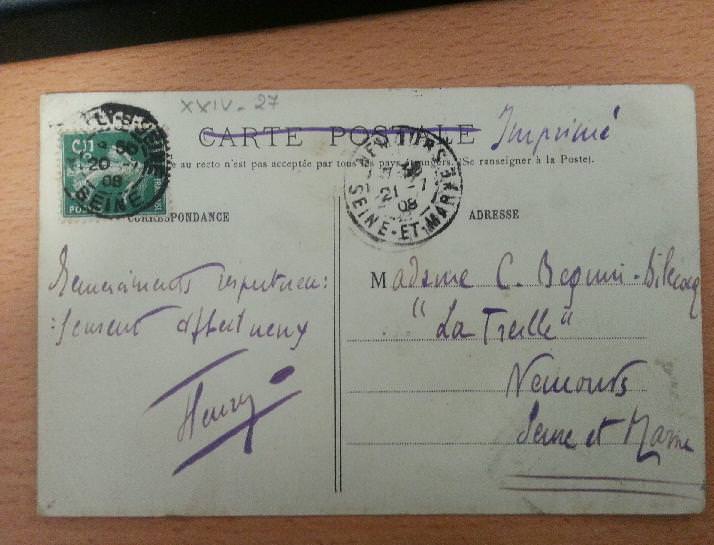 XXIV-27
CARTE POSTALE Imprimé
e au recto n'est pas acceptée par tous les pays étrangers. (Se renseigner à la Poste).
20 -
08
SEINE
NEMOURS
21 - 7
08
SEINE-ET-MARNE
CORRESPONDANCE
ADRESSE
Remerciements respectueu:
:sement affectueux
Henry
Madame C.
"La Treille"
Nemours
Seine et Marne